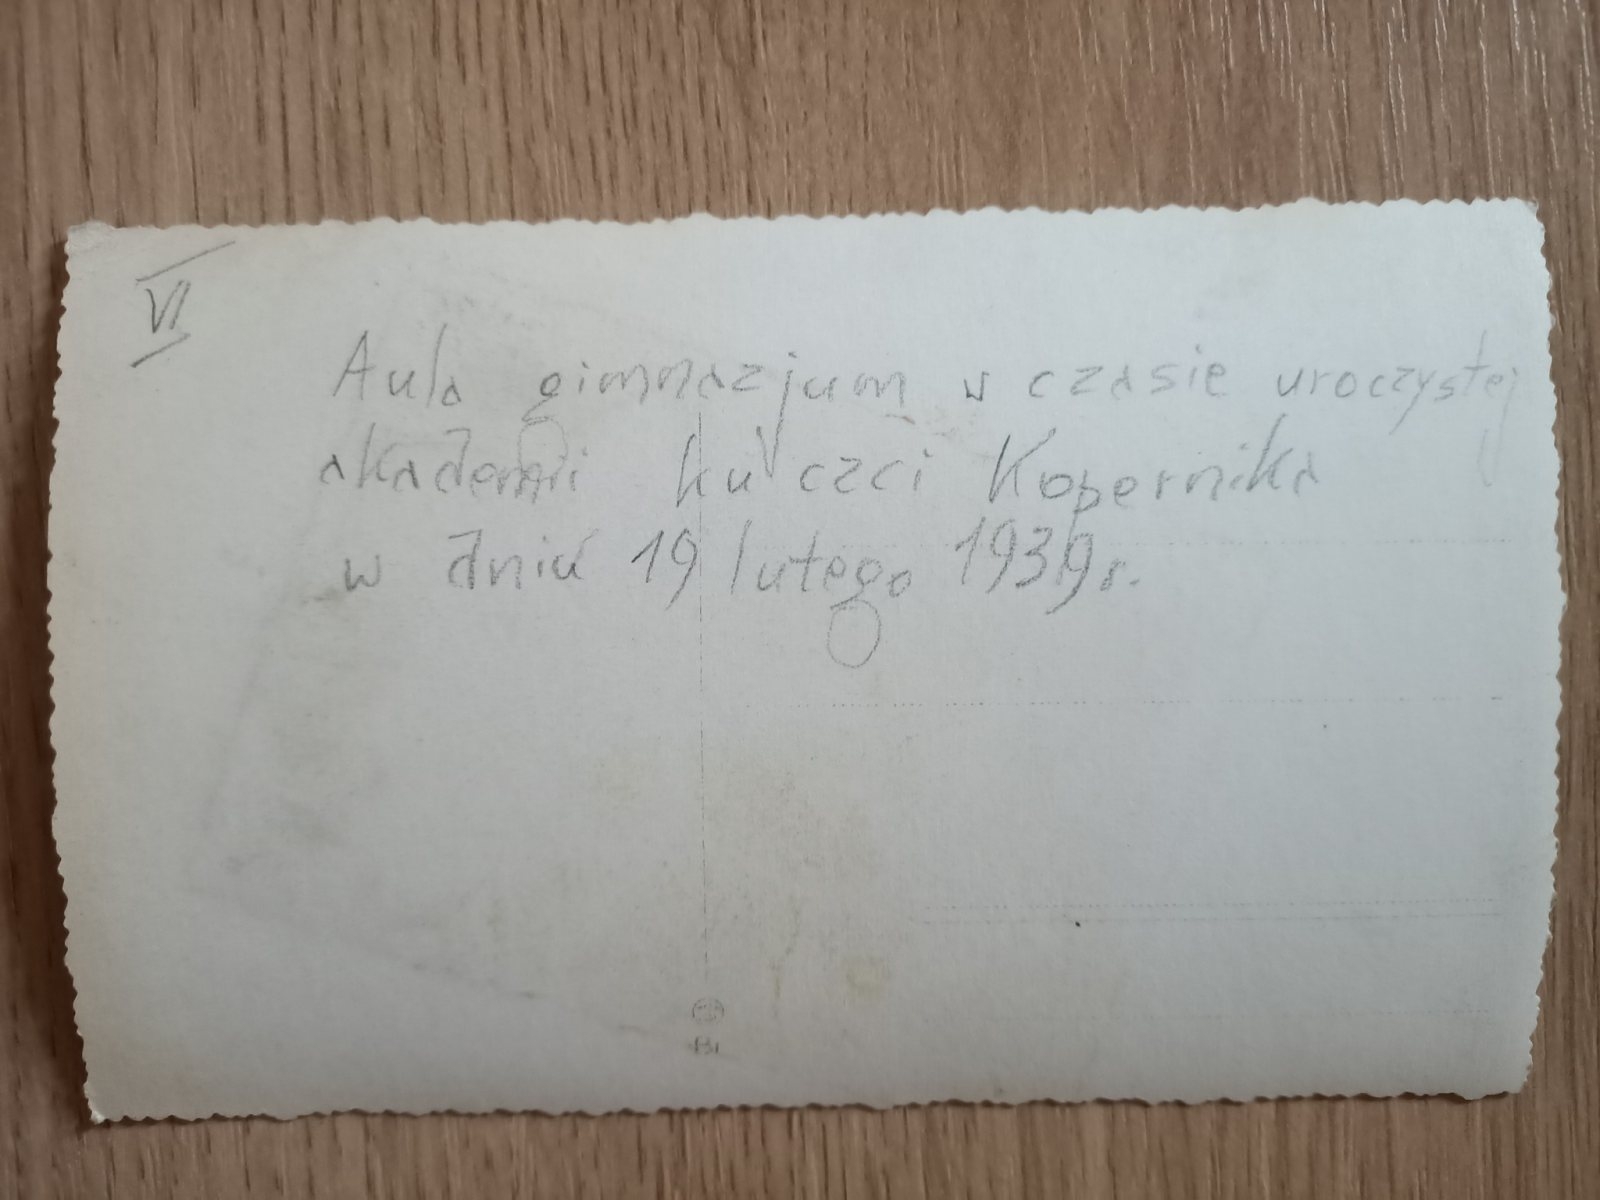 VI
Aula gimnazjum w czasie uroczystej
akademii ku czci Kopernika
w dniu 19 lutego 1939 r.